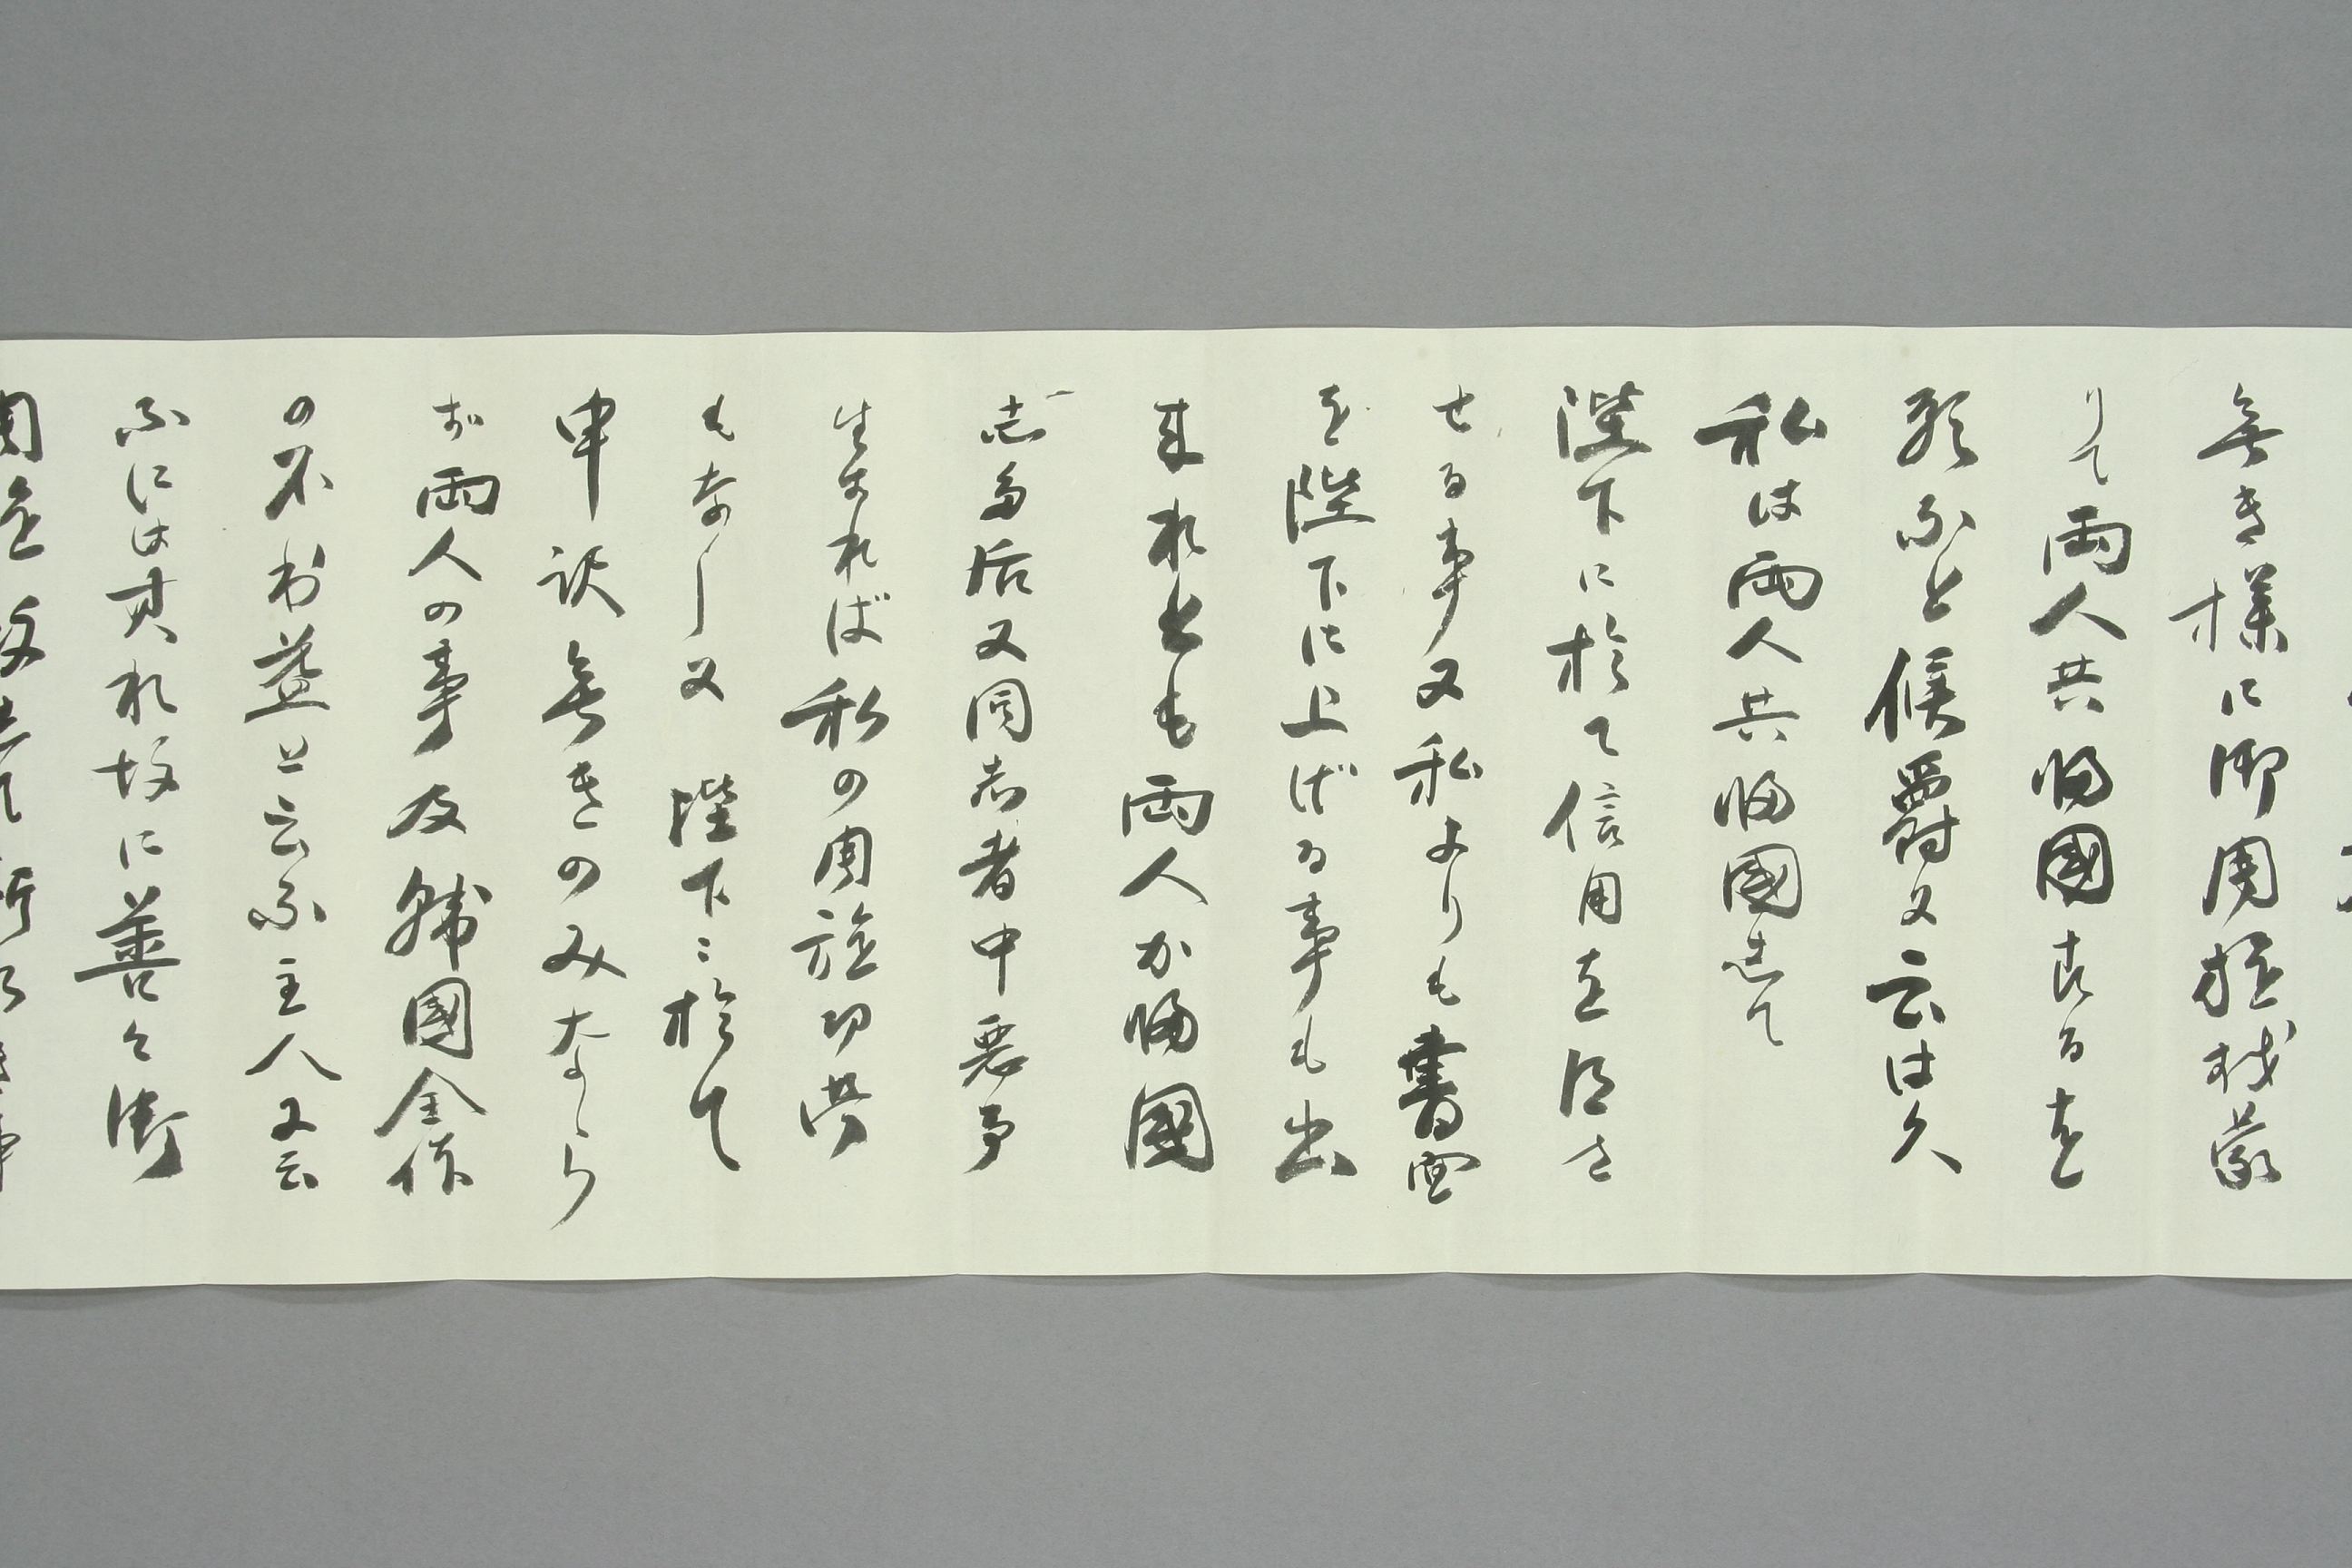 無き様に御周旋被蒙
りて両人共帰國するを
願ふと侯爵又云はく
私は両人共帰國して
陛下に於て信用を得さ
せる事又私よりも書面
を陛下に上げる事も出
来れとも両人か帰國
した后又同志者中悪事
生すれば私の周旋功労
もなし又陛下に於て
申訳無きのみなら
ず両人の事及韓國全体
の不利益と云ふ主人又云
ふには其れ故に善々御